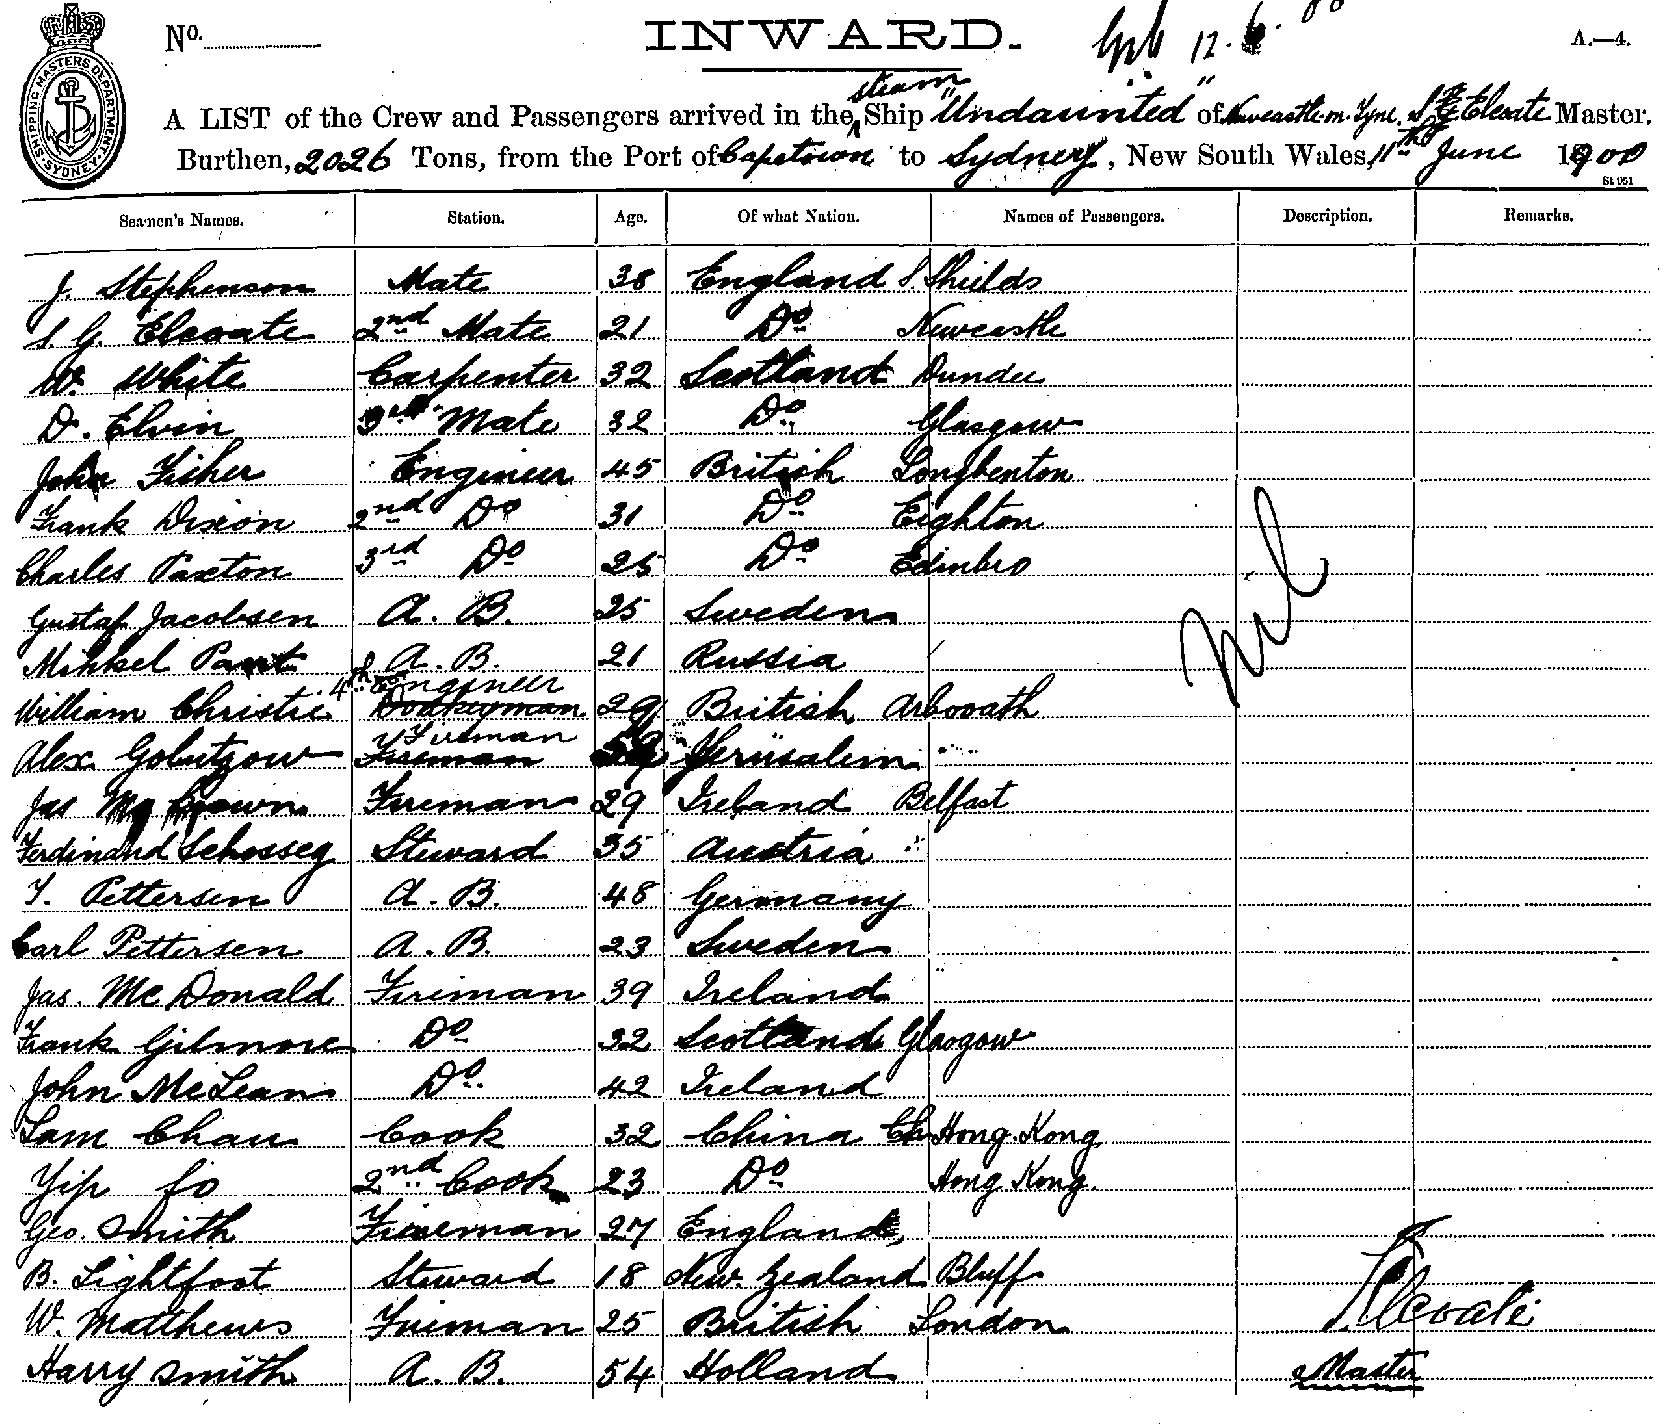 No.
INWARD.
12.6.00
A.—4.
SHIPPING MASTERS DEPARTMENT SYDNEY
steam
A LIST of the Crew and Passengers arrived in the Ship "Undaunted" of Newcastle on Tyne, Master,
Burthen, 2026 Tons, from the Port of Capetown to Sydney, New South Wales, 11th June 1900
St 951
Seamen's Names. Station. Age. Of what Nation. Names of Passengers. Description. Remarks.
J. Stephenson Mate 38 England S Shields
S. G. Elevate 2nd Mate 21 Do Newcastle
W. White Carpenter 32 Scotland Dundee
D. Elvin 3rd Mate 32 Do Glasgow
John Fisher Engineer 45 British Longbenton
Frank Dixon 2nd Do 31 Do Eighton
Charles Paxton 3rd Do 25 Do Edinbro
Gustaf Jacobsen A. B. 25 Sweden
Mihkel A. B. 21 Russia
4th Engineer
William Christie Donkeyman 29 British Arbroath
Fireman
Alex Fireman Jerusalem
Jas Fireman 29 Ireland Belfast
Ferdinand Schosseg Steward 35 Austria
Pettersen A. B. 48 Germany
Carl Pettersen A. B. 23 Sweden
Jas. McDonald Fireman 39 Ireland
Frank Gilmore Do 32 Scotland Glasgow
John McLean Do 42 Ireland
Lam Chau Cook 32 China Ch Hong Kong
Yip fo 2nd Cook 23 Do Hong Kong
Geo. Smith Fireman 27 England
B. Lightfoot Steward 18 New Zealand Bluff
W. Matthews Fireman 25 British London
Harry Smith A. B. 54 Holland
Nil
Master